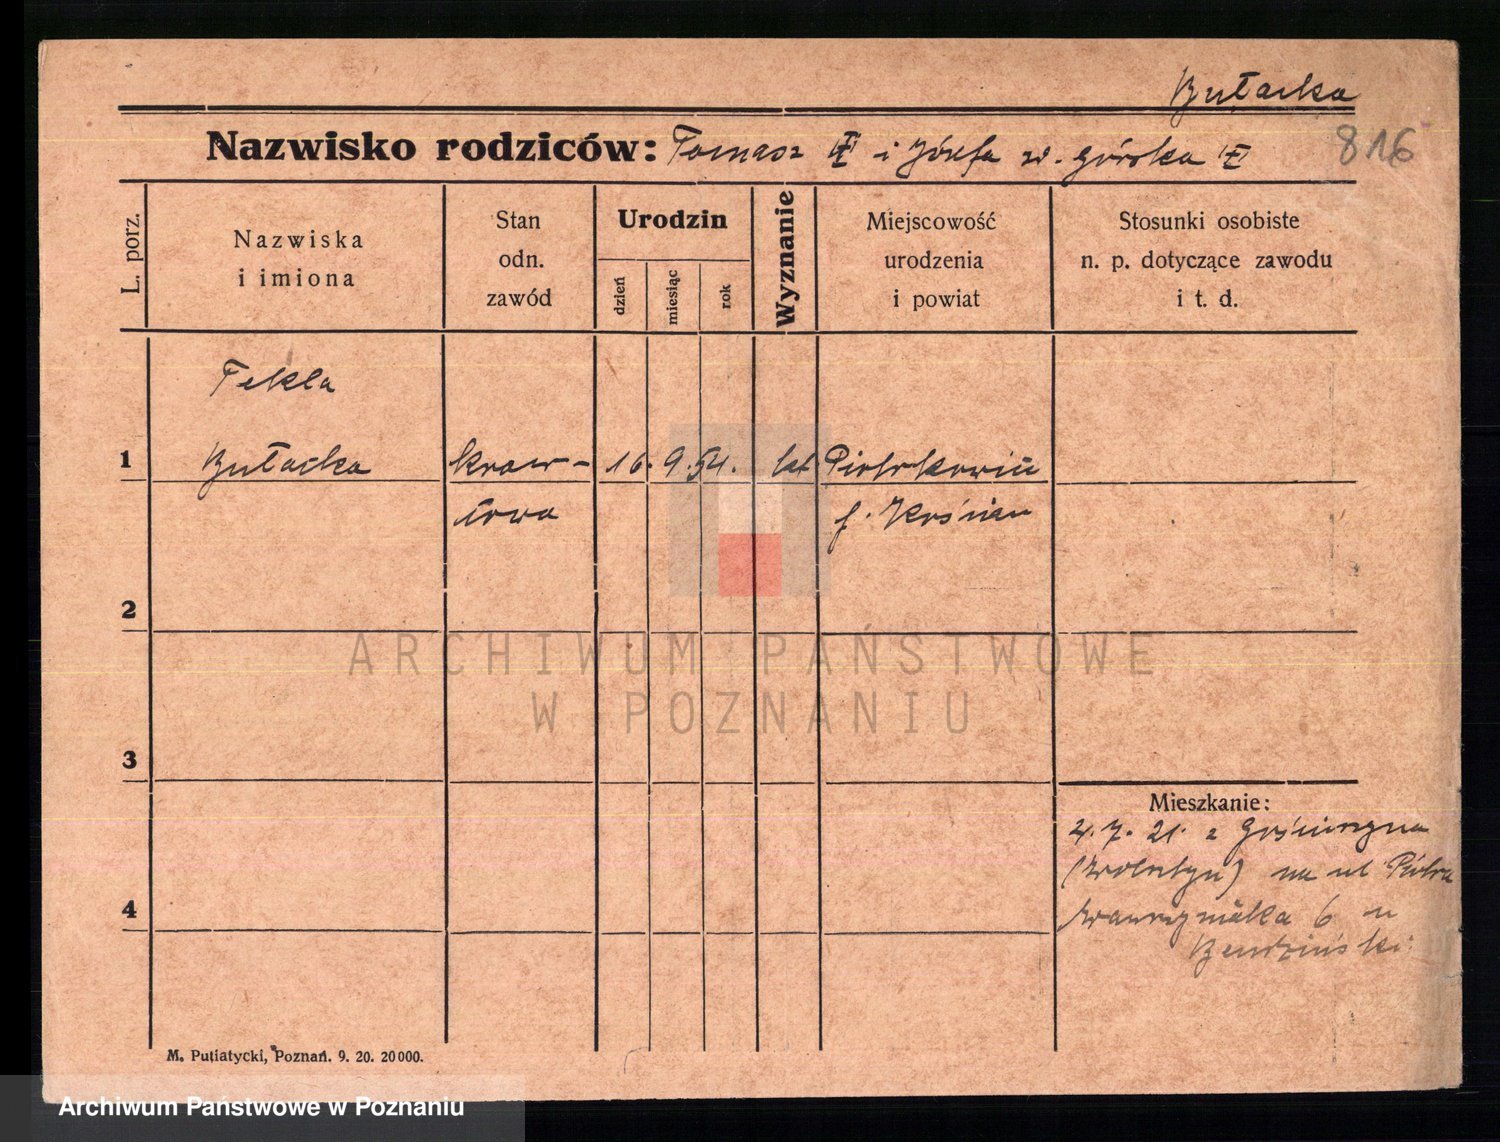 Bułacka
816
Nazwisko rodziców: Tomasz i Józefa z d. Górska
L. porz.
Nazwiska
i imiona
Stan
odn.
zawód
Urodzin
dzień
miesiąc
rok
Wyznanie
Miejscowość
urodzenia
i powiat
Stosunki osobiste
n. p. dotyczące zawodu
i t. d.
Tekla
1 Bułacka kraw- 16. 9. 54. kat Piotrkowice
cowa p. Kościan
2
3
4
Mieszkanie:
2. 7. 21. z
(Wolsztyn) na ul Piotra
Wawrzyniaka 6 u
M. Putiatycki, Poznań. 9. 20. 20000.
ARCHIWUM PAŃSTWOWE
W POZNANIU
Archiwum Państwowe w Poznaniu